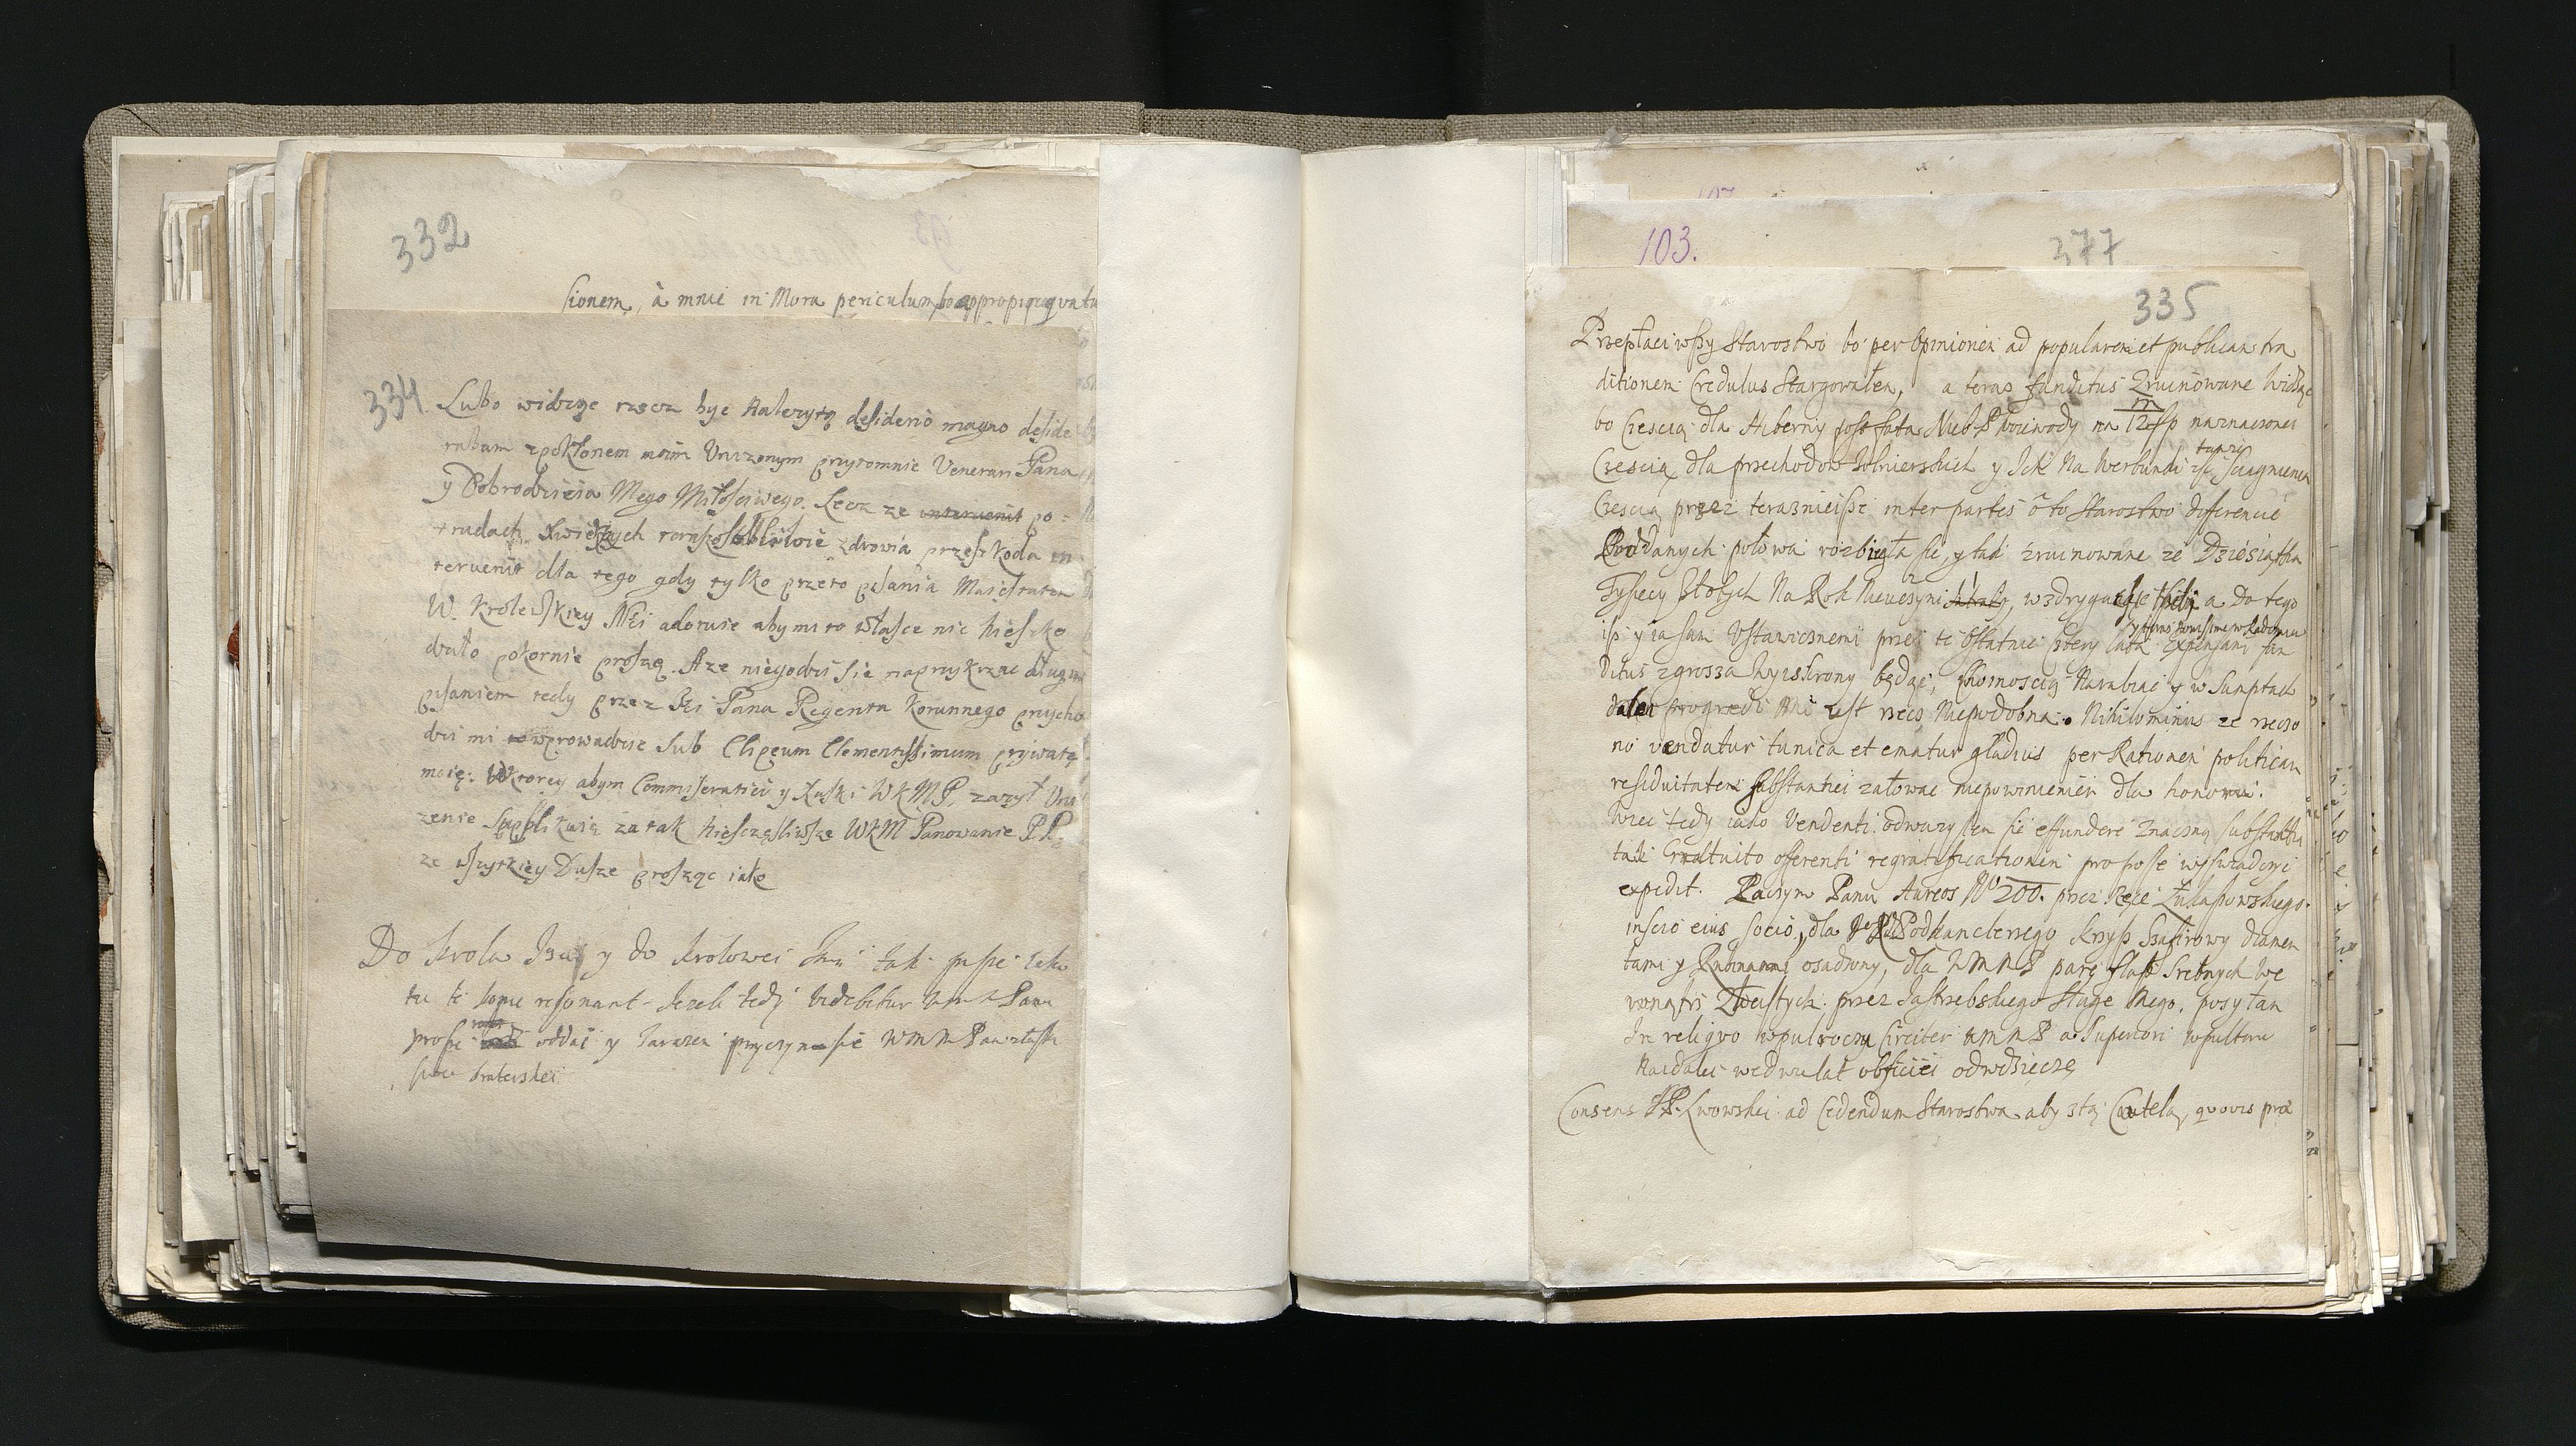 332
sionem, à mnie in Mora periculum bo appropinquat
334
Lubo widzę rzecz bye należytą desiderio magno deside
ratum z pokłonem moim Unizonym przytomnie Venerari Pana
y Dobrodzieia Mego Miłosciwego. Lecz ze intervenit po=
trudach swiezych zdrowia przeszkoda in
tervenit dla tego gdy tylko przez to pisania Maiestatem
W. Krolewskiey Msci adoruie aby mi to w łasce nic nieszko
dziło pokornie proszę. A ze niegodzi sie naprzykrzac długim
pisaniem tedy przez Pana Regenta Koronnego przycho
dzi mi wprowadzic sub Clipeum Clementissimum prywatę
moię: W ktorey abym Commiseratiei y Łaski WKMP, zazył Uni
zenie Supplikuię za tak nieszczęsliwsze WKM Panowanie P.
ze wszytkiey Dusze prosząc iako
Do Krola Imci y do Krolowei Imci tak pisze iako
tu te kopie resonant. Jezeli tedy videbitur WMM Panu
prosze oddac y zarazem przyczyn sie WMM Pan z łaski
swei braterskei
103.
377
335
Przepłaciwszy Starostwo bo per opinionem ad popularem et publicam tra
ditionem Credulus Stargowałem, a teraz funditus zruinowane widząc
bo Czescią dla Hiberny post fata Nieb P Woiewody na 12 naznaczonei
Czescią dla przechodow Zolnierskich y Ich na Werbunki sciągnienia
Czescią przez teraznieisze inter partes o to Starostwo diferencie
Poddanych połowa rozbiegła sie, y tak zruinowane ze Dziesiątka
Tysięcy złotych Na Rok Nieuczyni, a Do tego
isz y ia sam Ustawicznemi przez te ostatnie cztery lata expensami fun
ditus z grosza wyiskrony będąc, Chomoscią Narabiac y w Sumptach
daley progredi mi iest rzecz Niepodobna. Nihilominus ze rzeczo
no vendatur tunica et ematur gladius per Rationem politicam
residuitatem substantiei załowac niepowinienem dla honoru.
Wiec tedy iako Vendenti odwazyłem sie effundere znaczną substantią
tak Gratuito offerenti regratificationem pro posse wyswiadczyc
expedit. Raczym Panu Aureos No 200. przez Ręce Łukaszowskiego
inscio eius socio, dla Podkanclerzego Krzysz Szafirowy diamen
tami y Rubinami osadzony, dla WMMP parę flasz Srebrnych We
wnątrz Złocistych przez Jastrzebskiego Sługe Mego, posyłam
In reliquo w pułroczu Circiter WMMP a Superiori w pułtora
Naidaley we dwu lat obficiei odwdzięczę
Consens JP. Lwowskei ad Cedendum Starostwa aby z tą Cautelą, quovis prae